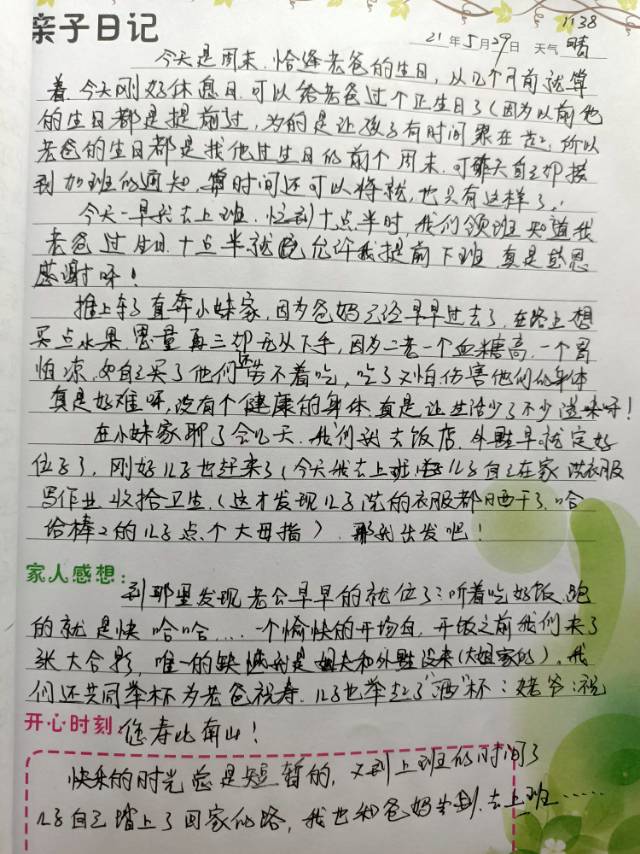 1138
亲子日记
21年5月29日 天气 晴
今天是周末,恰逢老爸的生日,从几个月前就算
着,今天刚好休息日,可以给老爸过个正生日了(因为以前他
的生日都是提前过,为的是让孩子有时间聚在一起,所以
老爸的生日都是找他过生日的前个周末,可昨天自己却接
到加班的通知,算时间还可以将就,也只有这样了!
今天一早我去上班,忙到十点半时,我们领班知道我
老爸过生日,十点半就允许我提前下班,真是感恩
感谢呀!
推上车子直奔小妹家,因为爸妈已经早早过去了,在路上想
买点水果,思量再三却无从下手,因为二老一个血糖高,一个胃
怕凉,如自己买了他们还劳不着吃,吃了又怕伤害他们的身体
真是好难呀,没有个健康的身体真是让生活少了不少滋味呀!
在小妹家聊了会儿天,我们到大饭店,外甥早就定好
位子了,刚好儿子也赶来了(今天我去上班,儿子自己在家洗衣服
写作业,收拾卫生,(这才发现儿子洗的衣服都晒干了,哈
给棒棒的儿子点个大母指),那就出发吧!
家人感想:
到那里发现老公早早的就位了:听着吃好饭,跑
的就是快哈哈....一个愉快的开场白,开饭之前我们来了
张大合影,唯一的缺憾则是姐夫和外甥没来(大姐家的),我
们还共同举杯为老爸祝寿,儿子也举起了"酒"杯:姥爷:祝
开心时刻:
您寿比南山!
快乐的时光总是短暂的,又到上班的时间了
儿子自己踏上了回家的路,我也和爸妈告别,去上班......